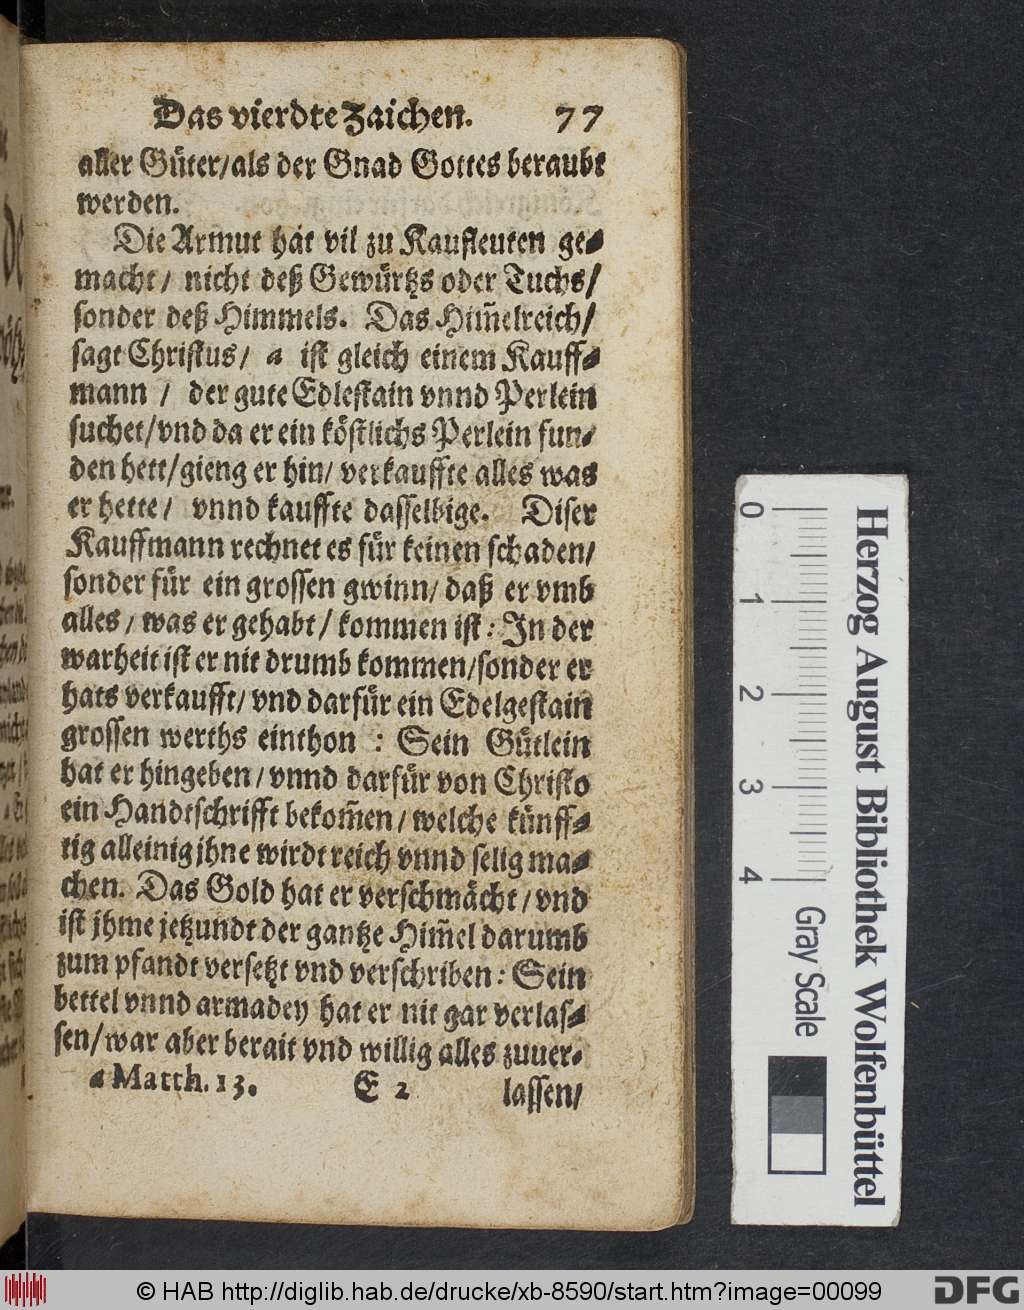 Das vierdte Zaichen. 77
aller Güter/als der Gnad Gottes beraubt
werden.
Die Armut hat vil zu Kaufleuten ge-
macht/ nicht deß Gewürtzs oder Tuchs/
sonder deß Himmels. Das Him̃elreich/
sagt Christus/ a ist gleich einem Kauff-
mann / der gute Edlestain vnnd Perlein
suchet/vnd da er ein köstlichs Perlein fun-
den hett/gieng er hin/ verkauffte alles was
er hette/ vnnd kauffte dasselbige. Diser
Kauffmann rechnet es für keinen schaden/
sonder für ein grossen gwinn/ daß er vmb
alles, was er gehabt/ kommen ist: In der
warheit ist er nit drumb kommen/sonder er
hats verkaufft/ vnd darfür ein Edelgestain
grossen werths einthon : Sein Gütlein
hat er hingeben/vnnd darfür von Christo
ein Handtschrifft bekom̃en/ welche künff-
tig alleinig jhne wirdt reich vnnd selig ma-
chen. Das Gold hat er verschmächt/vnd
ist jhme jetzundt der gantze Him̃el darumb
zum pfandt versetzt vnd verschriben: Sein
bettel vnnd armadey hat er nit gar verlas-
sen/war aber berait vnd willig alles zuuer-
a Matth. 13. E 2 lassen/
0 1 2 3 4 Gray Scale
Herzog August Bibliothek Wolfenbüttel
© HAB http://diglib.hab.de/drucke/xb-8590/start.htm?image=00099 DFG